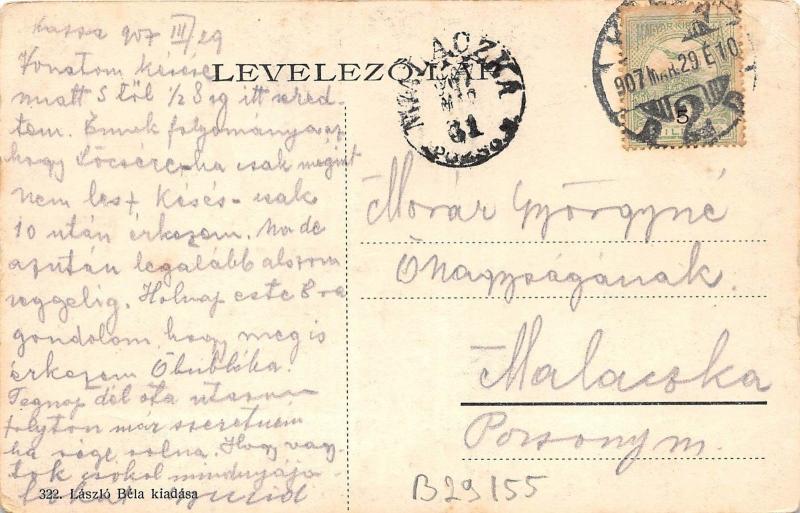 Kassa 907 III/29
LEVELEZŐ-LAP
Vonatom késése
miatt 5 től 1/2 8 ig itt ered-
tem. Ennek folyománya az
hogy Lőcsére, ha csak megint
nem lesz késés - csak
10 után érkezem. Na de
azután legalább alszom
reggelig. Holnap este 8 ra
gondolom, hogy meg is
érkezem Óbubliba.
Tegnap dél óta utazom
folyton már szeretném
ha vége volna. Hogy vagy-
tok csókol mindnyája-
tokat
322. László Béla kiadása
MALACZKA
907
31
POZSONY M.
MAGYAR KIR
907 MÁR. 29 É 10
5
Morár Györgyné
Őnagyságának
Malaczka
Pozsony m.
B29/55